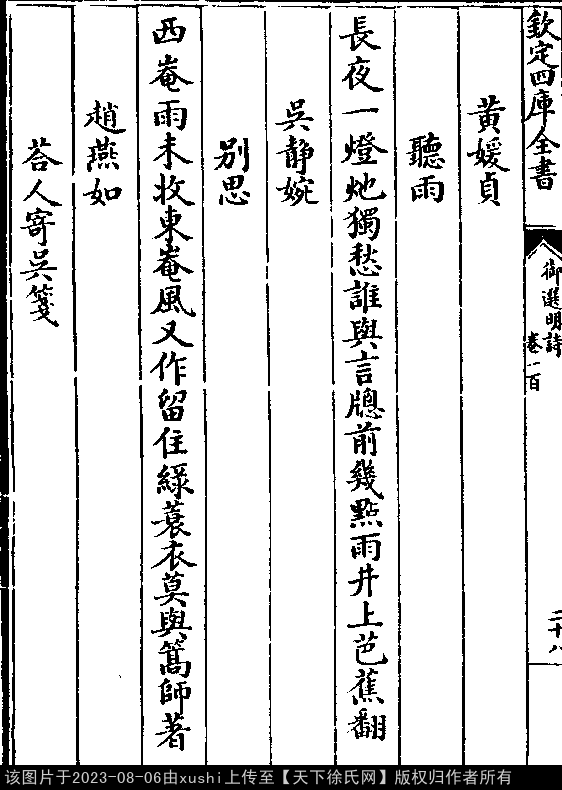 欽定四庫全書
御選明詩
卷一百
二十八
黃媛貞
聽雨
長夜一燈灺獨愁誰與言牕前幾點雨井上芭蕉翻
吳靜婉
別思
西菴雨未收東菴風又作留住綠蓑衣莫與篙師著
趙燕如
荅人寄吳箋
该图片于2023-08-06由xushi上传至【天下徐氏网】版权归作者所有